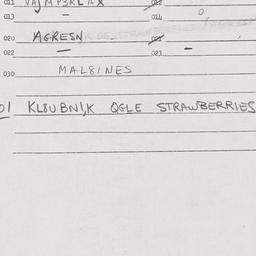 011 VAJMP3RLAX 012
013 — 014 0
020 AGRESN 021
022 — 023 —
030 MAL8INES
01 KL8UBNI,K QGLE STRAWBERRIES